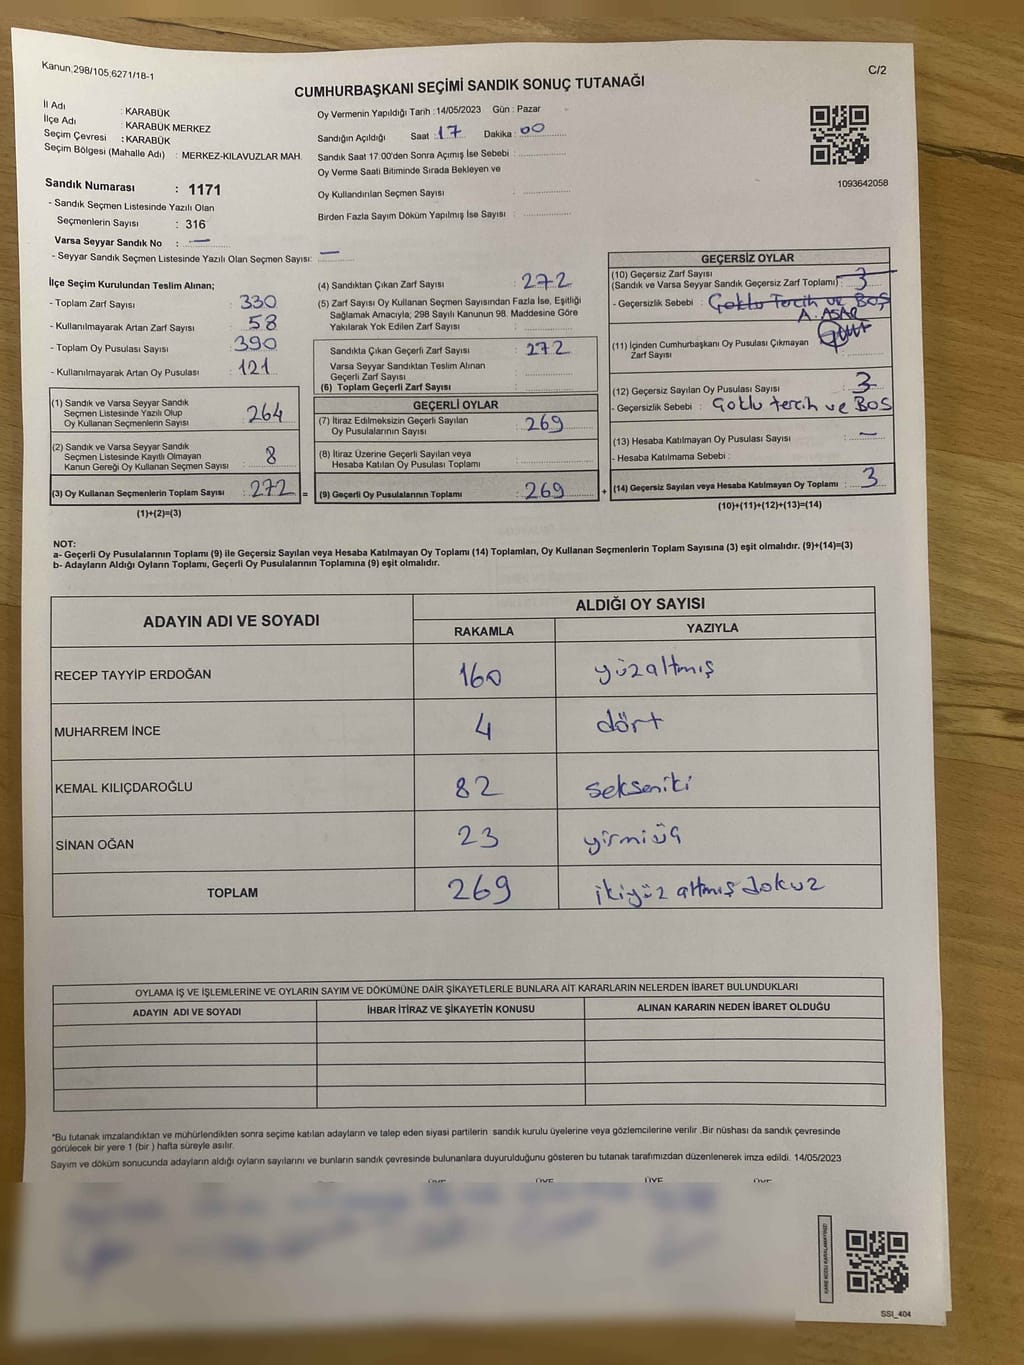 Kanun,298/105,6271/18-1
C/2
CUMHURBAŞKANI SEÇİMİ SANDIK SONUÇ TUTANAĞI
İl Adı : KARABÜK
İlçe Adı : KARABÜK MERKEZ
Seçim Çevresi : KARABÜK
Seçim Bölgesi (Mahalle Adı) : MERKEZ-KILAVUZLAR MAH.
Sandık Numarası : 1171
- Sandık Seçmen Listesinde Yazılı Olan
Seçmenlerin Sayısı : 316
Varsa Seyyar Sandık No : —
- Seyyar Sandık Seçmen Listesinde Yazılı Olan Seçmen Sayısı: —
Oy Vermenin Yapıldığı Tarih :14/05/2023 Gün : Pazar
Sandığın Açıldığı Saat : 17 Dakika : 00
Sandık Saat 17:00'den Sonra Açımış İse Sebebi :
Oy Verme Saati Bitiminde Sırada Bekleyen ve
Oy Kullandırılan Seçmen Sayısı :
Birden Fazla Sayım Döküm Yapılmış İse Sayısı :
1093642058
İlçe Seçim Kurulundan Teslim Alınan;
- Toplam Zarf Sayısı : 330
- Kullanılmayarak Artan Zarf Sayısı : 58
- Toplam Oy Pusulası Sayısı : 390
- Kullanılmayarak Artan Oy Pusulası : 121
(1) Sandık ve Varsa Seyyar Sandık
Seçmen Listesinde Yazılı Olup
Oy Kullanan Seçmenlerin Sayısı : 264
(2) Sandık ve Varsa Seyyar Sandık
Seçmen Listesinde Kayıtlı Olmayan
Kanun Gereği Oy Kullanan Seçmen Sayısı : 8
(3) Oy Kullanan Seçmenlerin Toplam Sayısı : 272 =
(1)+(2)=(3)
(4) Sandıktan Çıkan Zarf Sayısı : 272
(5) Zarf Sayısı Oy Kullanan Seçmen Sayısından Fazla İse, Eşitliği
Sağlamak Amacıyla; 298 Sayılı Kanunun 98. Maddesine Göre
Yakılarak Yok Edilen Zarf Sayısı :
Sandıkta Çıkan Geçerli Zarf Sayısı : 272
Varsa Seyyar Sandıktan Teslim Alınan
Geçerli Zarf Sayısı :
(6) Toplam Geçerli Zarf Sayısı :
GEÇERLİ OYLAR
(7) İtiraz Edilmeksizin Geçerli Sayılan
Oy Pusulalarının Sayısı : 269
(8) İtiraz Üzerine Geçerli Sayılan veya
Hesaba Katılan Oy Pusulası Toplamı :
(9) Geçerli Oy Pusulalarının Toplamı : 269 +
GEÇERSİZ OYLAR
(10) Geçersiz Zarf Sayısı
(Sandık ve Varsa Seyyar Sandık Geçersiz Zarf Toplamı) : 3
- Geçersizlik Sebebi : Çoklu Tercih ve BOŞ
A. ASAR
(11) İçinden Cumhurbaşkanı Oy Pusulası Çıkmayan
Zarf Sayısı :
(12) Geçersiz Sayılan Oy Pusulası Sayısı : 3
- Geçersizlik Sebebi : Çoklu tercih ve BOŞ
(13) Hesaba Katılmayan Oy Pusulası Sayısı : —
- Hesaba Katılmama Sebebi :
(14) Geçersiz Sayılan veya Hesaba Katılmayan Oy Toplamı : 3
(10)+(11)+(12)+(13)=(14)
NOT:
a- Geçerli Oy Pusulalarının Toplamı (9) ile Geçersiz Sayılan veya Hesaba Katılmayan Oy Toplamı (14) Toplamları, Oy Kullanan Seçmenlerin Toplam Sayısına (3) eşit olmalıdır. (9)+(14)=(3)
b- Adayların Aldığı Oyların Toplamı, Geçerli Oy Pusulalarının Toplamına (9) eşit olmalıdır.
ADAYIN ADI VE SOYADI ALDIĞI OY SAYISI
RAKAMLA YAZIYLA
RECEP TAYYİP ERDOĞAN 160 yüzaltmış
MUHARREM İNCE 4 dört
KEMAL KILIÇDAROĞLU 82 sekseniki
SİNAN OĞAN 23 yirmiüç
TOPLAM 269 ikiyüz altmış dokuz
OYLAMA İŞ VE İŞLEMLERİNE VE OYLARIN SAYIM VE DÖKÜMÜNE DAİR ŞİKAYETLERLE BUNLARA AİT KARARLARIN NELERDEN İBARET BULUNDUKLARI
ADAYIN ADI VE SOYADI İHBAR İTİRAZ VE ŞİKAYETİN KONUSU ALINAN KARARIN NEDEN İBARET OLDUĞU
*Bu tutanak imzalandıktan ve mühürlendikten sonra seçime katılan adayların ve talep eden siyasi partilerin sandık kurulu üyelerine veya gözlemcilerine verilir .Bir nüshası da sandık çevresinde
görülecek bir yere 1 (bir ) hafta süreyle asılır.
Sayım ve döküm sonucunda adayların aldığı oyların sayılarını ve bunların sandık çevresinde bulunanlara duyurulduğunu gösteren bu tutanak tarafımızdan düzenlenerek imza edildi. 14/05/2023
ÜYE ÜYE ÜYE ÜYE
SSI_404